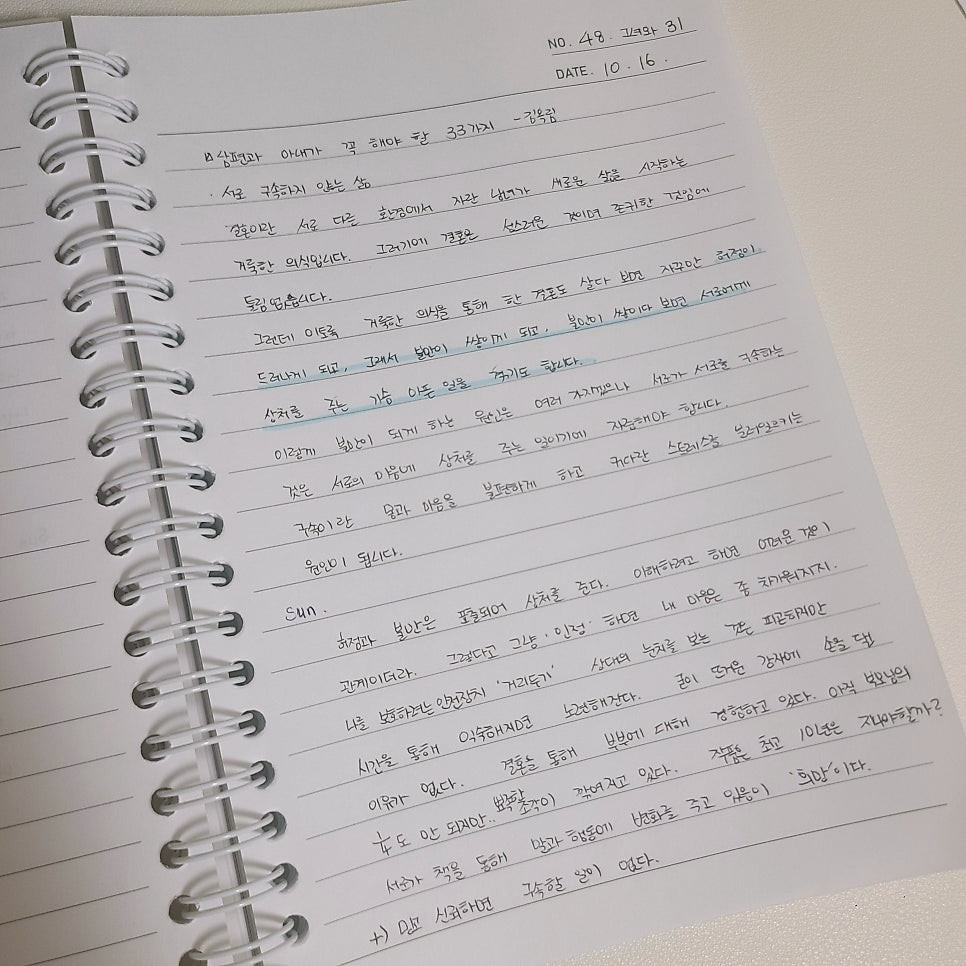 NO. 48. 그녀와 31
DATE. 10. 16.
남편과 아내가 꼭 해야 할 33가지 - 김옥림
· 서로 구속하지 않는 삶
결혼이란 서로 다른 환경에서 자란 남녀가 새로운 삶을 시작하는
거룩한 의식입니다. 그러기에 결혼은 성스러운 것이며 존귀한 것임에
틀림없습니다.
그런데 이토록 거룩한 의식을 통해 한 결혼도 살다 보면 자꾸만 허점이
드러나게 되고, 그래서 불만이 쌓이게 되고, 불만이 쌓이다 보면 서로에게
상처를 주는 가슴 아픈 일을 겪기도 합니다.
이렇게 불만이 되게 하는 원인은 여러 가지겠으나 서로가 서로를 구속하는
것은 서로의 마음에 상처를 주는 일이기에 지양해야 합니다.
구속이란 몸과 마음을 불편하게 하고 커다란 스트레스를 불러일으키는
원인이 됩니다.
Sun.
허점과 불만은 표출되어 상처를 준다. 이해하려고 하면 어려운 것이
관계이더라. 그렇다고 그냥 '인정' 하면 내 마음은 좀 차가워지지.
나를 보호하려는 안전장치 '거리두기' 상대의 눈치를 보는 것은 피곤하지만
시간을 통해 익숙해지면 노련해진다. 굳이 뜨거운 감자에 손을 댈
이유가 없다. 결혼을 통해 부부에 대해 경험하고 있다. 아직 부모님의
¼도 안 되지만.. 뾰족한 조각이 깎여지고 있다. 작품은 최고 10년은 지나야할까?
서로가 책을 통해 말과 행동에 변화를 주고 있음이 '희망'이다.
+) 믿고 신뢰하면 구속할 일이 없다.